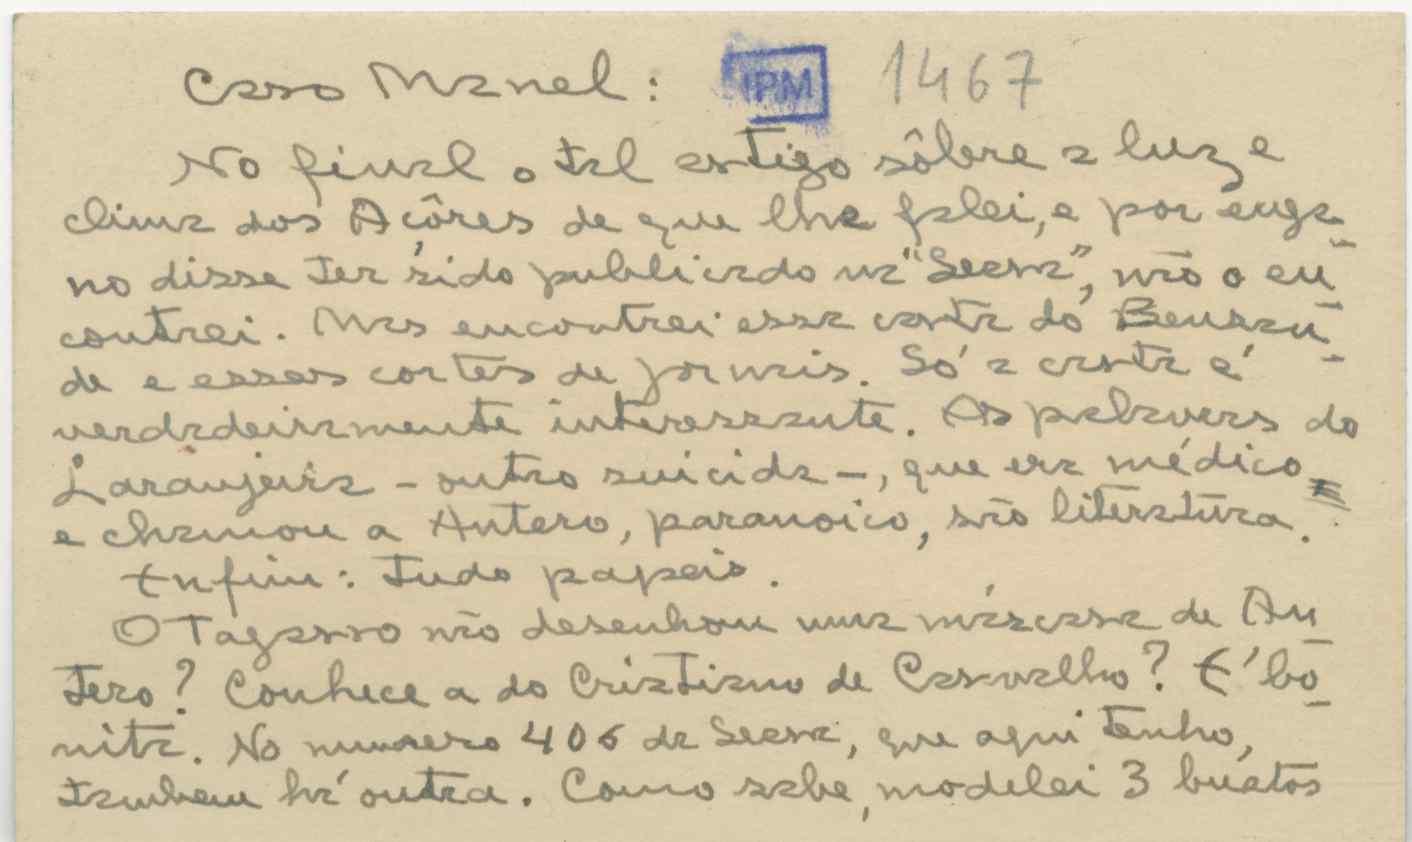 Caro Manel: IPM 1467
No final o tal artigo sôbre a luz e
clima dos Açôres de que lhe falei, e por enga-
no disse ter sido publicado na "Seara", não o en-
contrei. Mas encontrei essa carta do Bensau-
de e esses cortes de jornais. Só a carta é
verdadeiramente interessante. As palavras do
Laranjeira - outro suicida -, que era médico
e chamou a Antero, paranoico, são literatura.
Enfim: tudo papeis.
O Tagarro não desenhou uma máscara de An-
tero? Conhece a do Cristiano de Carvalho? É bo-
nita. No numero 406 da Seara, que aqui tenho,
tambem há outra. Como sabe, modelei 3 bustos